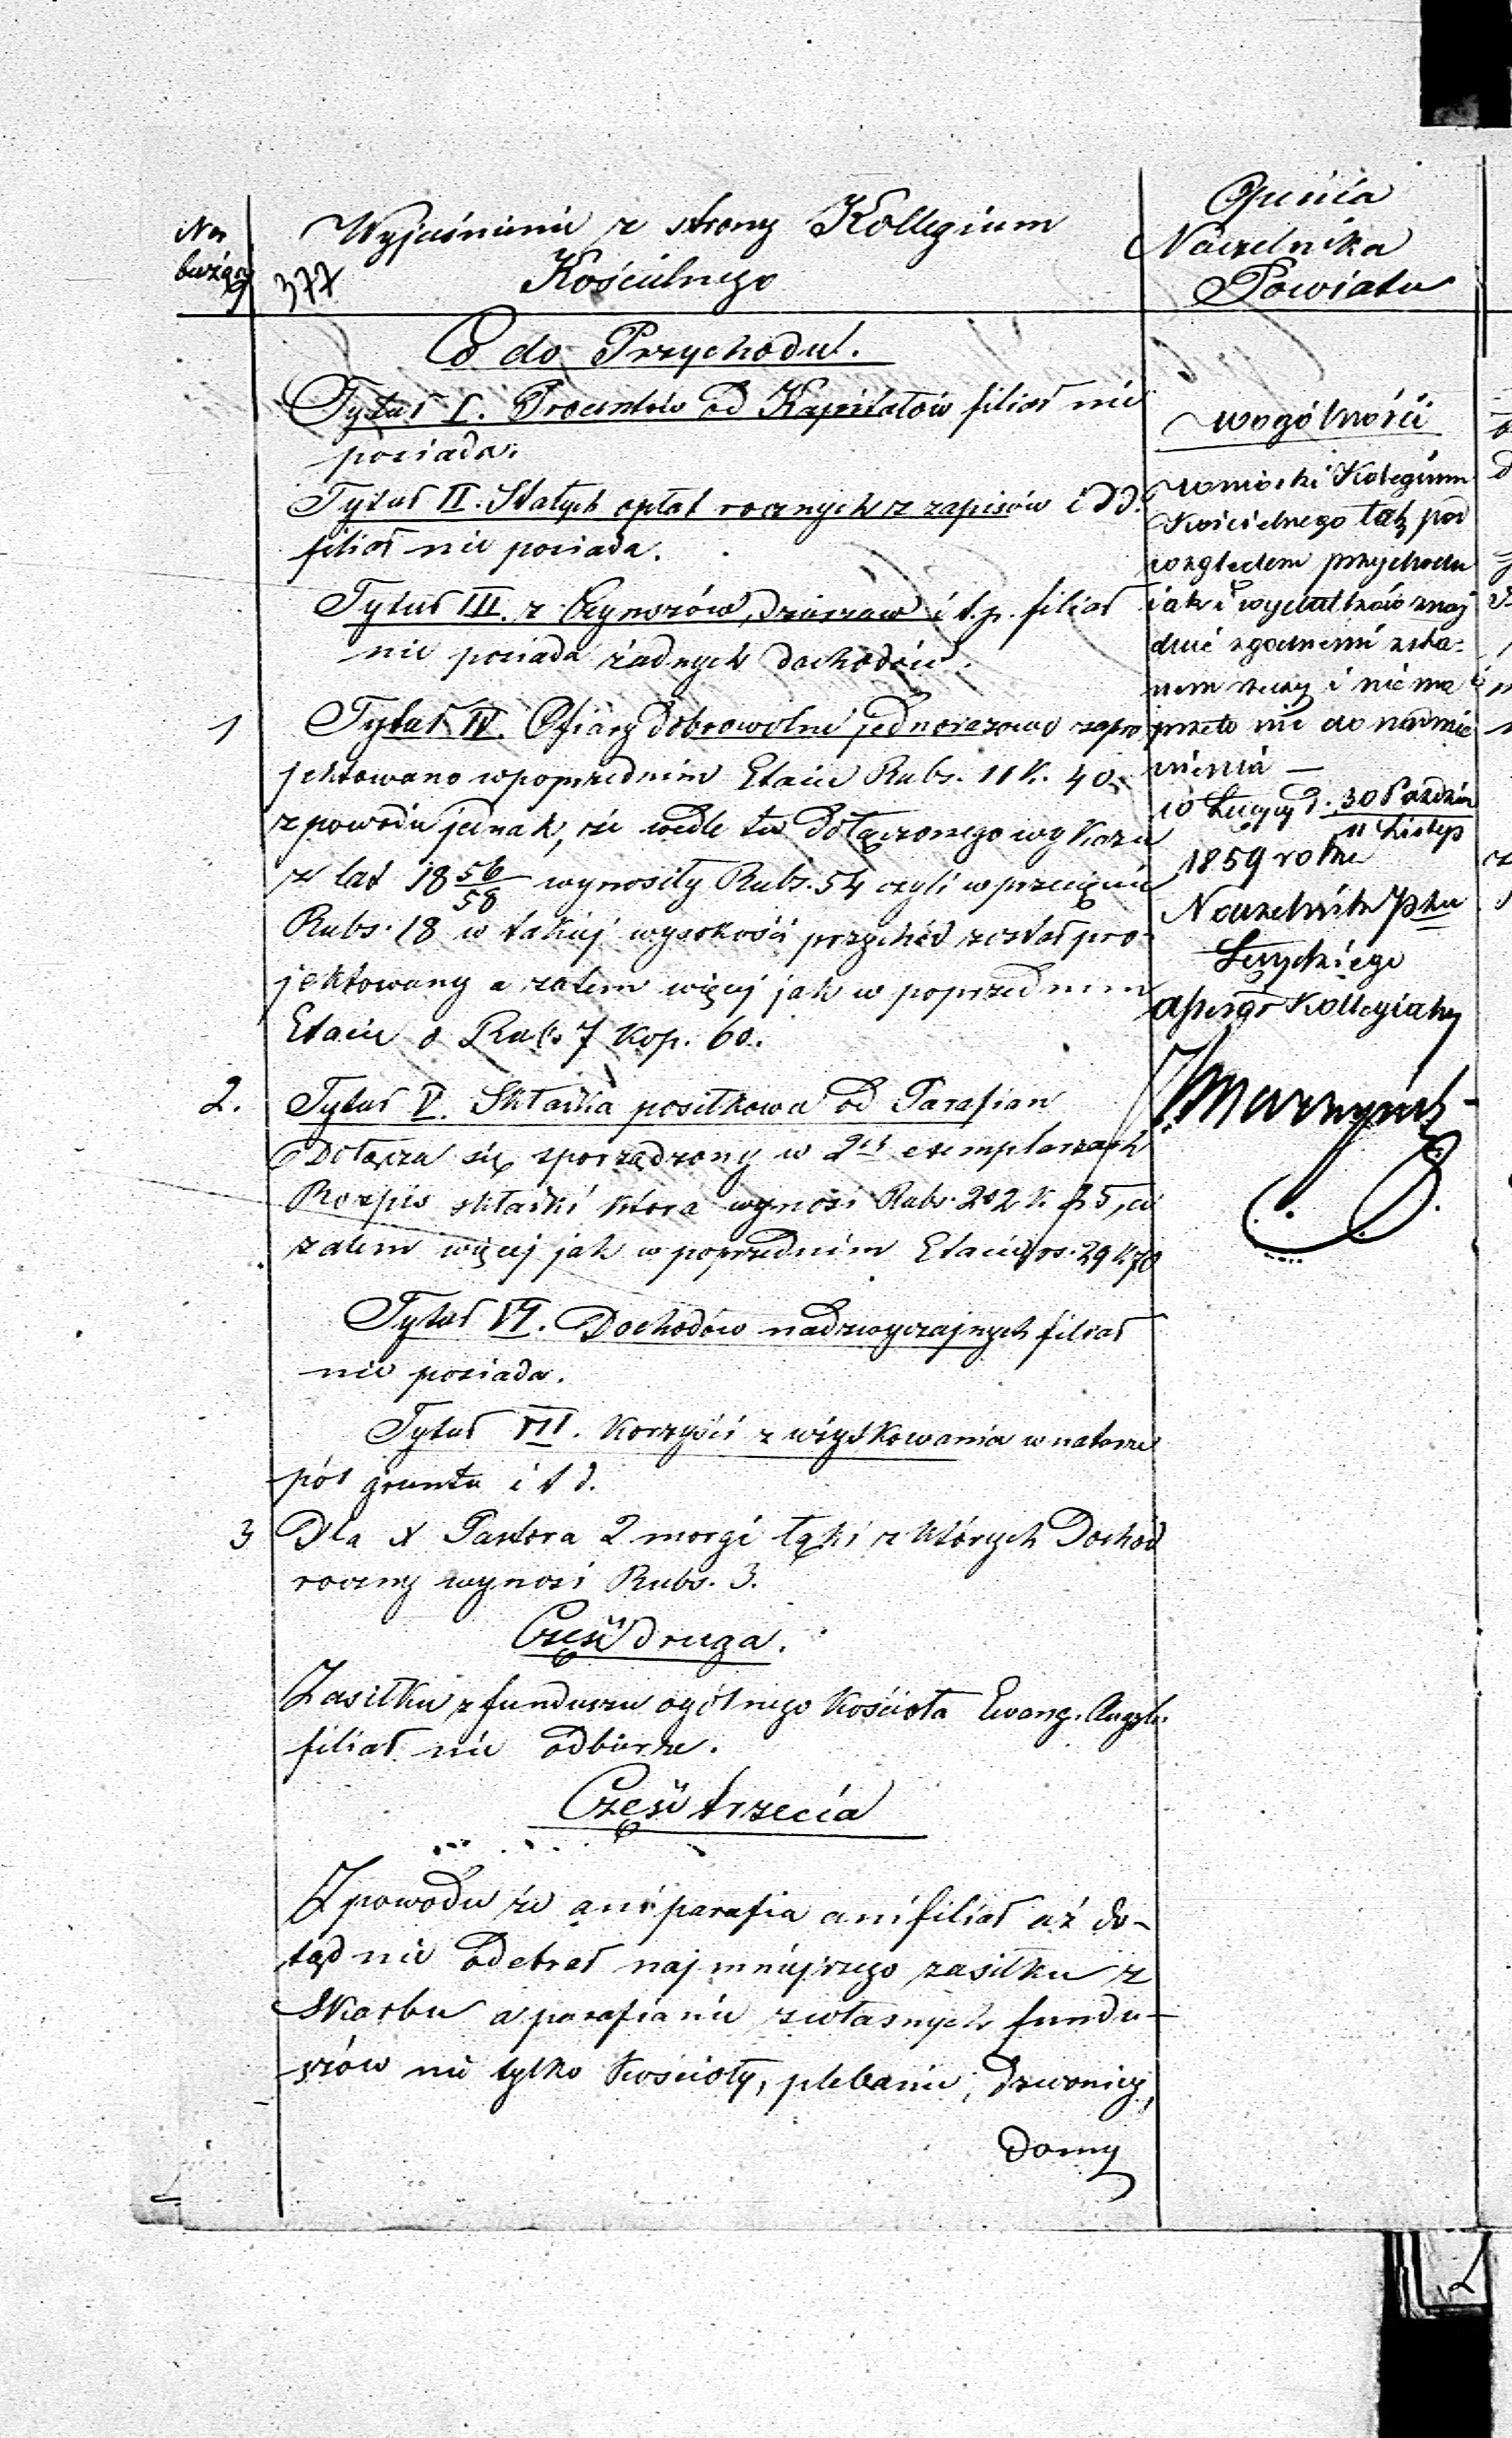 Nr
bieżący
377
Wyjaśnienie z strony Kollegium
Kościelnego
Opinia
Naczelnika
Powiatu
Co do Przychodu.
Tytuł I. Procentów od Kapitałów filiał nie
posiada.
Tytuł II. Stałych opłat rocznych z zapisów i t.d.
filiał nie posiada.
Tytuł III. z Czynszów, dzierzaw i t.p. filiał
nie posiada żadnych dochodów.
1 Tytuł IV. Ofiary dobrowolne jednorazowe zapro
jektowano w poprzednim Etacie Rubs. 11 K. 40.
z powodu jednak, że wedle tu dołączonego wykazu
z lat 18 56/58 wynosiły Rubs. 54 czyli w przecięciu
Rubs. 18 w takiej wysokości przychód został pro-
jektowany a zatem więcej jak w poprzednim
Etacie o Rubs 7 Kop. 60.
2. Tytuł V. Składka posiłkowa od Parafian
Dołącza się sporządzony w 2ch exemplarzach
Rozpis składki która wynosi Rubs. 202 K. 35, a
zatem więcej jak w poprzednim Etacie rs. 29 K. 70
Tytuł VI. Dochodów nadzwyczajnych filiał
nie posiada.
Tytuł VII. Korzyści z użytkowania w naturze
pól gruntu i t d.
3 Dla X Pastora 2 morgi łąki z których Dochód
roczny wynosi Rubs. 3.
Część druga.
Zasiłku z funduszu ogólnego Kościoła Ewang. Augsb.
filiał nie odbierze.
Część trzecia
Z powodu że ani parafia ani filiał aż do-
tąd nie odebrał najmniejszego zasiłku z
Skarbu a parafianie z własnych fundu-
szów nie tylko Kościoły, plebanie, Dzwonicy,
Domy
w ogólności
wnioski Kolegium
Kościelnego tak pod
względem przychodu
jak i wydatków znaj
duie zgodnemi z sta-
nem rzeczy i nie ma
przeto nic do nadmie
nienia —
w Łęczycy d. 30 Paździer / 11 Listop
1859 roku
Naczelnik Ptu
Łęczyckiego
Assesor Kollegialny